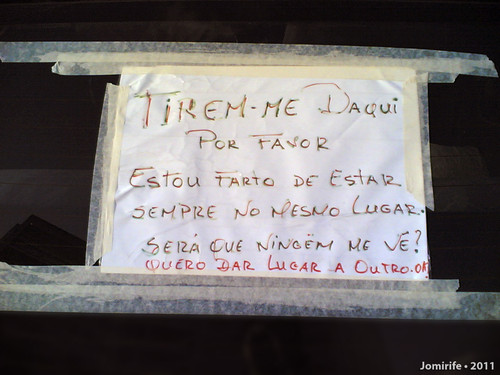 TIREM-ME DAQUI
POR FAVOR
ESTOU FARTO DE ESTAR
SEMPRE NO MESMO LUGAR.
SERÁ QUE NINGÉM ME VÊ?
QUERO DAR LUGAR A OUTRO.OK
Jomirife • 2011